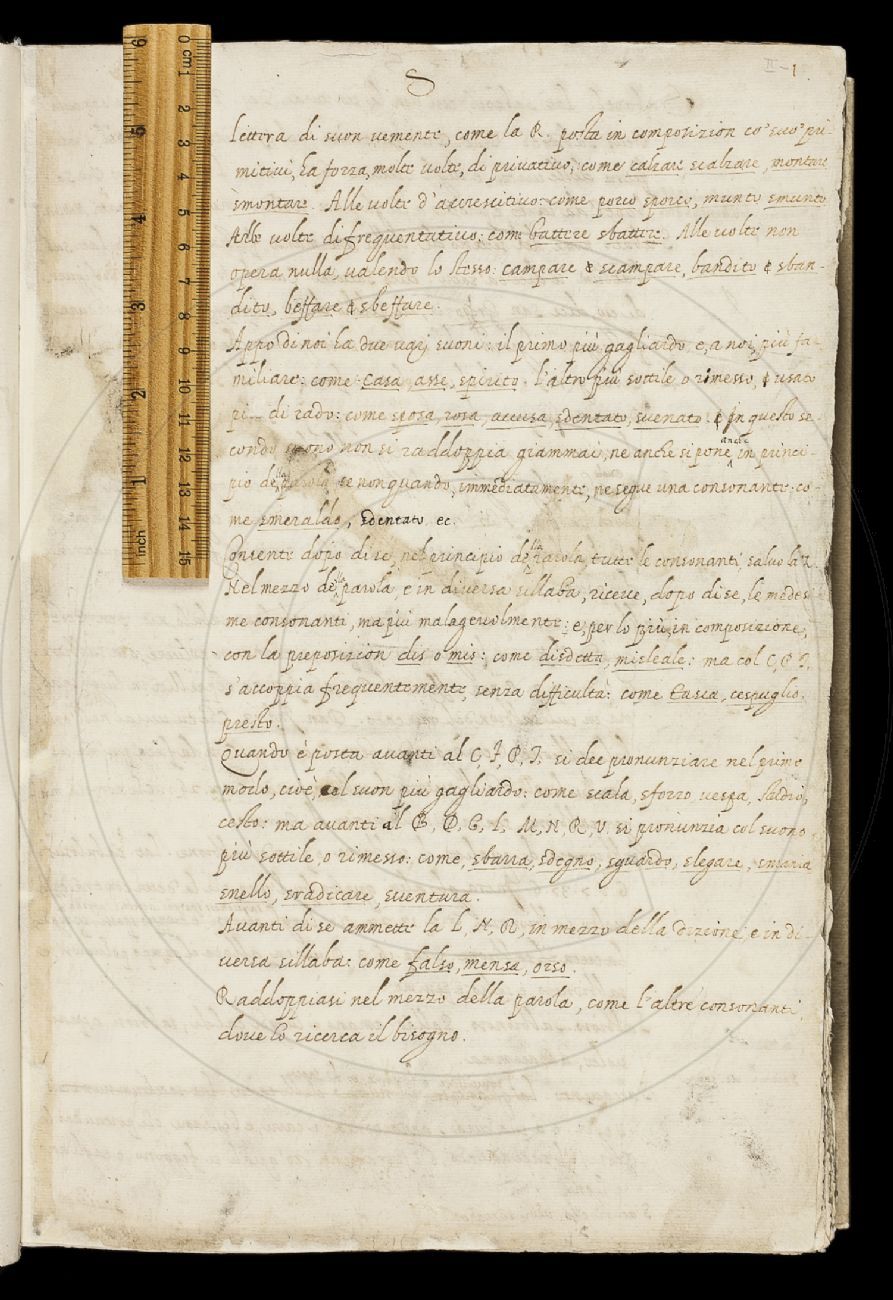 S
II-1
Lettera di suon uemente, come la R. posta in composizion co' suo' pri-
mitiui, ha forza, molte uolte, di priuatiuo, come calzare scalzare, montare
smontare. Alle uolte d'accrescitiuo: come porco sporco, munto smunto
Alle uolte di frequentatiuo: come battere sbattere. Alle uolte non
opera nulla, ualendo lo stesso: campare e scampare, bandito e sban-
dito, beffare e sbeffare.
Appo di noi ha due varj suoni: il primo più gagliardo, e, a noi, più fa-
miliare: come casa, asse, spirito. l'altro più sottile, o rimesso, e usato
di rado: come sposa, rosa, accusa, sdentato, suenato. e in questo se-
condo suono non si raddoppia giammai, ne anche si pone anche in princi-
pio della parola se non quando, immediatamente, ne segue una consonante: co-
me smeraldo, sdentato ec.
Consente dopo di se, nel principio della parola, tutte le consonanti, saluo la Z.
Nel mezzo della parola, e in diuersa sillaba, riceue, dopo di se, le medesi-
me consonanti, ma più malageuolmente: e, per lo più, in composizione,
con la preposizion dis o mis: come disdetta, misleale: ma col C, P, T,
s'accoppia frequentemente, senza difficultà: come tasca, cespuglio,
presto.
Quando è posta auanti al C, F, P, T. si dee pronunziare nel primo
modo, cioè, col suon più gagliardo: come scala, sforzo, uespa,
cesto: ma auanti al B, D, G, L, M, N, R, V. si pronunzia col suono
più sottile, o rimesso: come, sbarra, sdegno, sguardo, slegare, smania
snello, sradicare, suentura.
Auanti di se ammette la L, N, R, in mezzo della dizione, e in di-
uersa sillaba: come falso, mensa, orso.
Raddoppiasi nel mezzo della parola, come l'altre consonanti,
doue lo ricerca il bisogno.
0 cm 1 2 3 4 5 6 7 8 9 10 11 12 13 14 15
6 5 4 3 2 1 inch